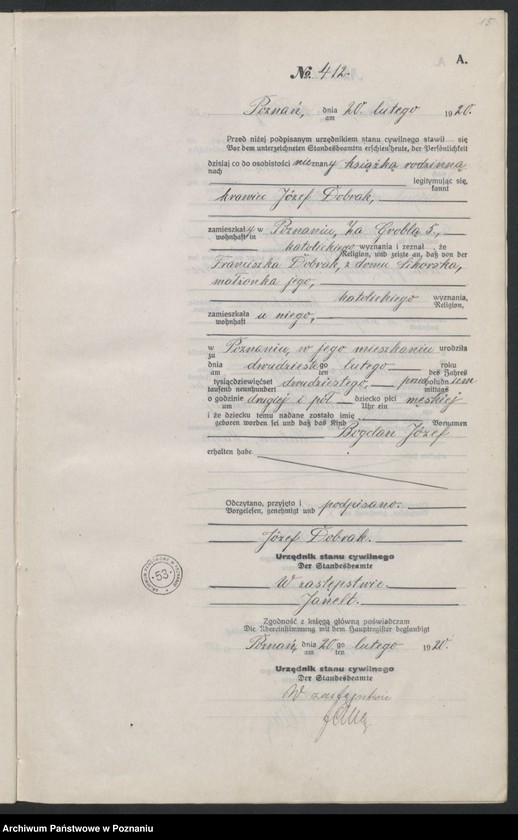 15
A.
No. 412.
Poznań, dnia 20 lutego 1920.
am
Przed niżej podpisanym urzędnikiem stanu cywilnego stawił się
Vor dem unterzeichneten Standesbeamten erschien heute, der Persönlichkeit
dzisiaj co do osobistości nieznany książką rodzinną
nach
legitymując się,
kannt
krawiec Józef Dobrak,
zamieszkały w Poznaniu, Za Groblą 5,
wohnhaft in
katolickiego wyznania i zeznał, że
Religion, und zeigte an, daß von der
Franciszka Dobrak, z domu Sikorska,
małżonka jego,
katolickiego wyznania,
Religion,
zamieszkała u niego,
wohnhaft
w Poznaniu, w jego mieszkaniu urodziła
zu
dnia dwudziestego lutego roku
ten des Jahres
tysiącdziewięćset dwudziestego, przedpołudniem
tausend neunhundert mittags
o godzinie drugiej i pół dziecko płci męskiej
um Uhr ein
i że dziecku temu nadane zostało imię
geboren worden sei und daß das Kind Vornamen
Bogdan Józef
erhalten habe.
Odczytano, przyjęto i podpisano.
Vorgelesen, genehmigt und
Józef Dobrak.
Urzędnik stanu cywilnego
Der Standesbeamte
W zastępstwie
Janelt.
Zgodność z księgą główną poświadczam
Die Übereinstimmung mit dem Hauptregister beglaubigt
Poznań, dnia 20 go lutego 1920.
am ten
Urzędnik stanu cywilnego
Der Standesbeamte
W zastępstwie
53
Archiwum Państwowe w Poznaniu